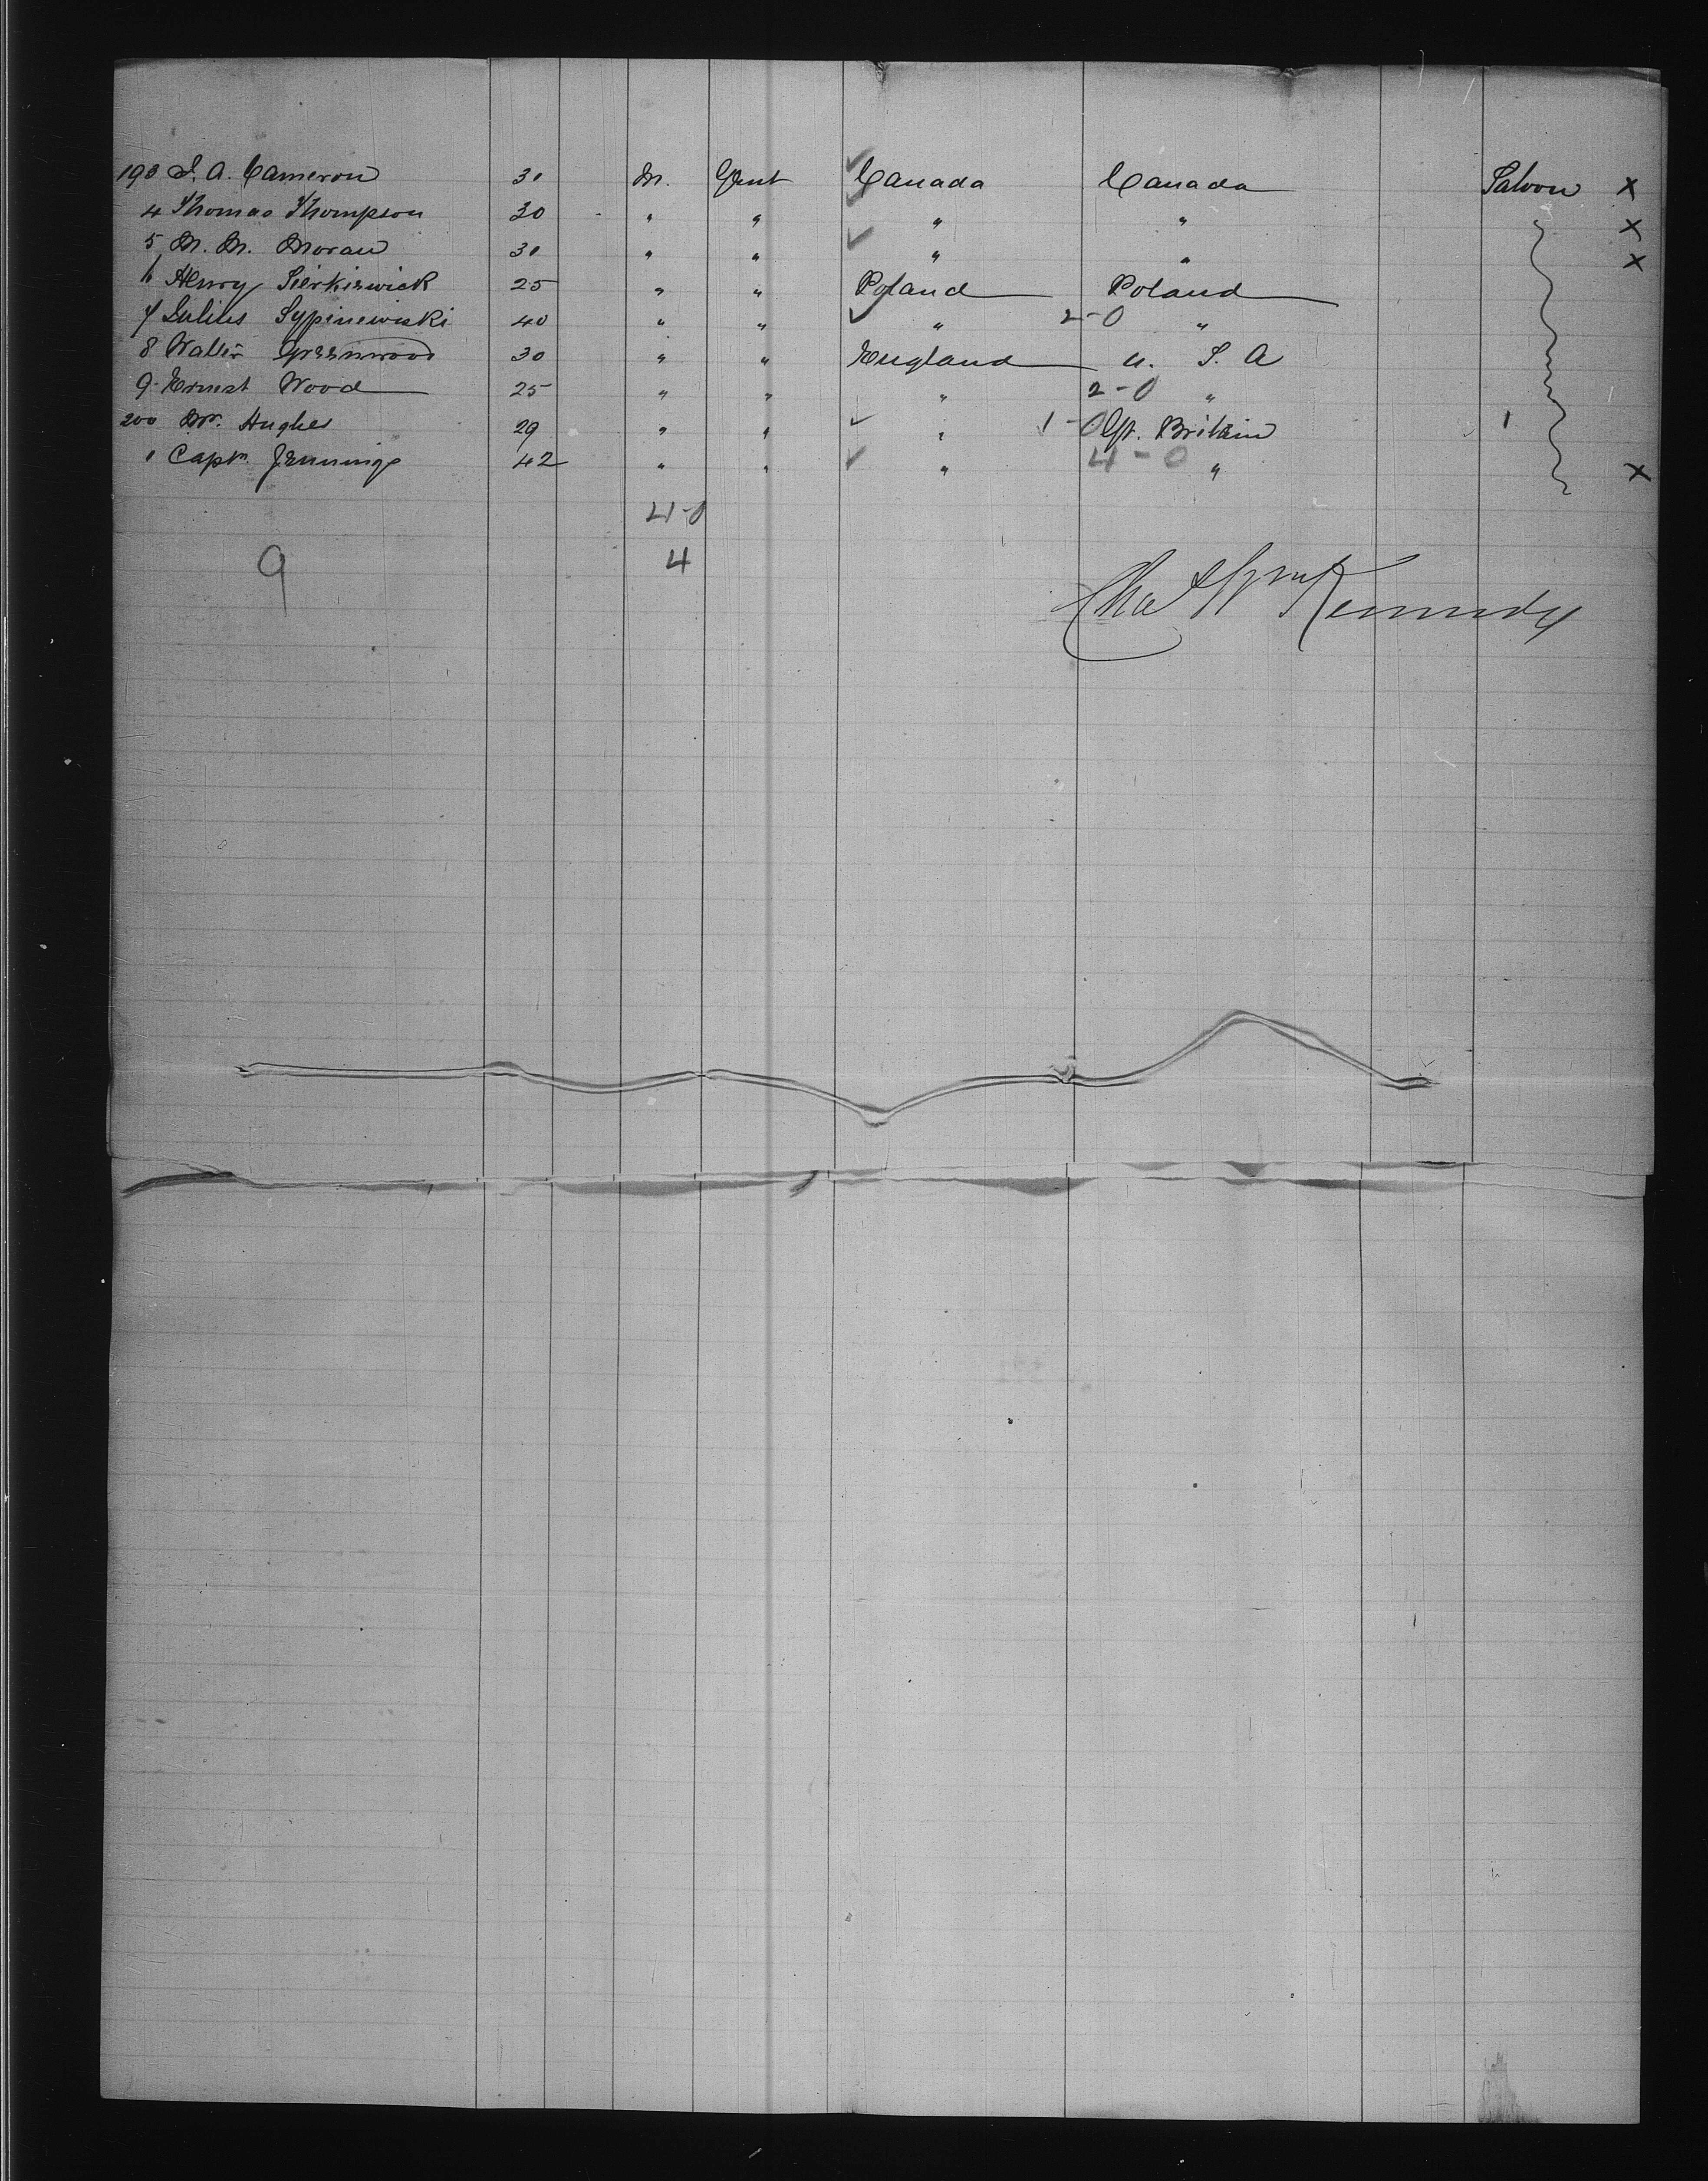 193 S. A. Cameron 30 M. Gent Canada Canada Saloon X
4 Thomas Thompson 30 " " " " X
5 M. M. Moran 30 " " " " X
6 Henry Sierkiswick 25 " " Poland Poland
7 Julius Sypiniewiski 40 " " " 2-0 "
8 Walter Greenwood 30 " " England U. S. A
9 Ernest Wood 25 " " " 2-0 "
200 Mr. Hughes 29 " " " 1-0 Gt. Britain 1
1 Capt. Jennings 42 " " " 4-0 " X
4-0
9 4
Chas Wm Kennedy